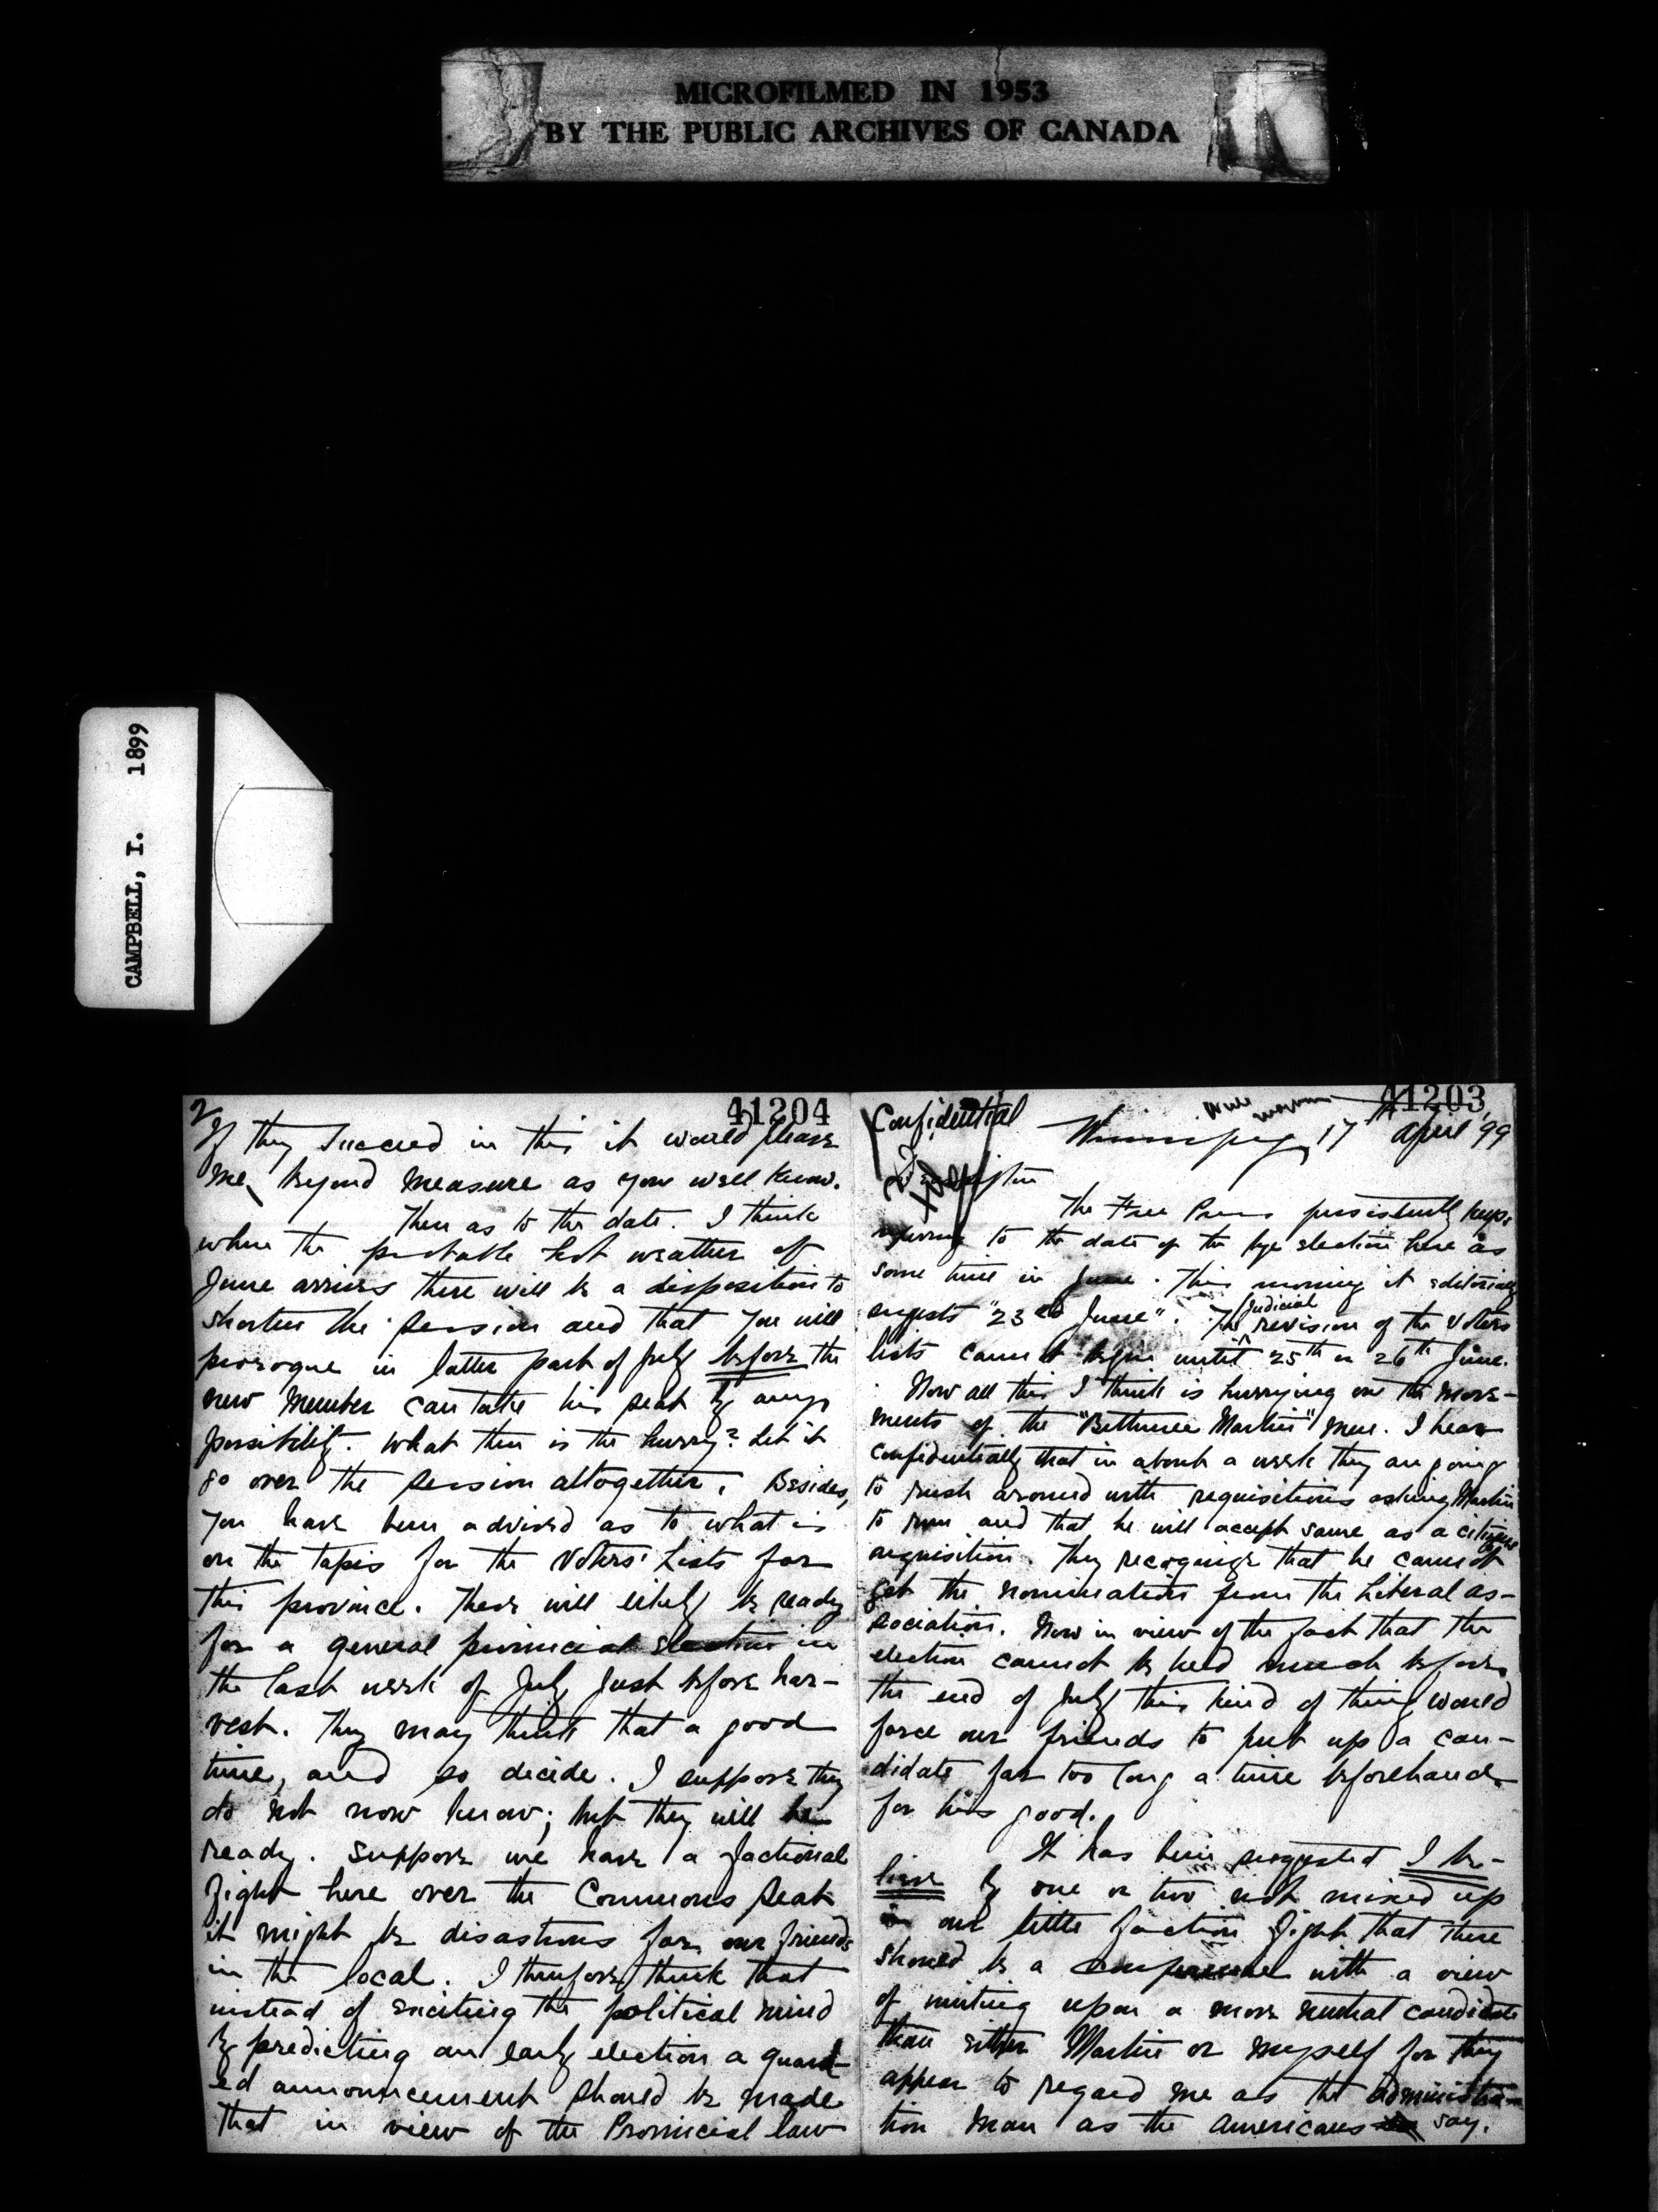 MICROFILMED IN 1953
BY THE PUBLIC ARCHIVES OF CANADA
CAMPBELL, I. 1899
41203
Confidential
Winnipeg, 17th April '99
The Free Press persistently keeps
referring to the date of the bye election here as
some time in June. This morning it editorially
suggests "23rd June". The judicial revision of the voters
lists cannot begin until 25th or 26th June.
Now all this I think is hurrying on the move-
ments of the "Bethune Martin" men. I hear
confidentially that in about a week they are going
to rush around with requisitions asking Martin
to run and that he will accept same as a citizens
requisition. They recognize that he cannot
get the nomination from the Liberal as-
sociation. Now in view of the fact that the
election cannot be held much before
the end of July this kind of thing would
force our friends to put up a can-
didate far too long a time beforehand
for his good.
It has been suggested I be-
lieve by one or two not mixed up
in our little faction fight that there
should be a conference with a view
of uniting upon a more neutral candidate
than either Martin or myself for they
appear to regard me as the administra-
tion man as the Americans say.
2
41204
If they succeed in this it would please
me beyond measure as you well know.
Then as to the date. I think
when the probable hot weather of
June arrives there will be a disposition to
shorten the session and that you will
prorogue in latter part of July before the
new member can take his seat by any
possibility. What then is the hurry? Let it
go over the session altogether. Besides,
you have been advised as to what is
on the tapis for the Voters' Lists for
this province. These will likely be ready
for a general provincial election in
the last week of July just before har-
vest. They may think that a good
time, and so decide. I suppose they
do not now know; but they will be
ready. Suppose we have a factional
fight here over the Commons seat
it might be disastrous for our friends
in the local. I therefore think that
instead of exciting the political mind
by predicting an early election a guard-
ed announcement should be made
that in view of the Provincial law